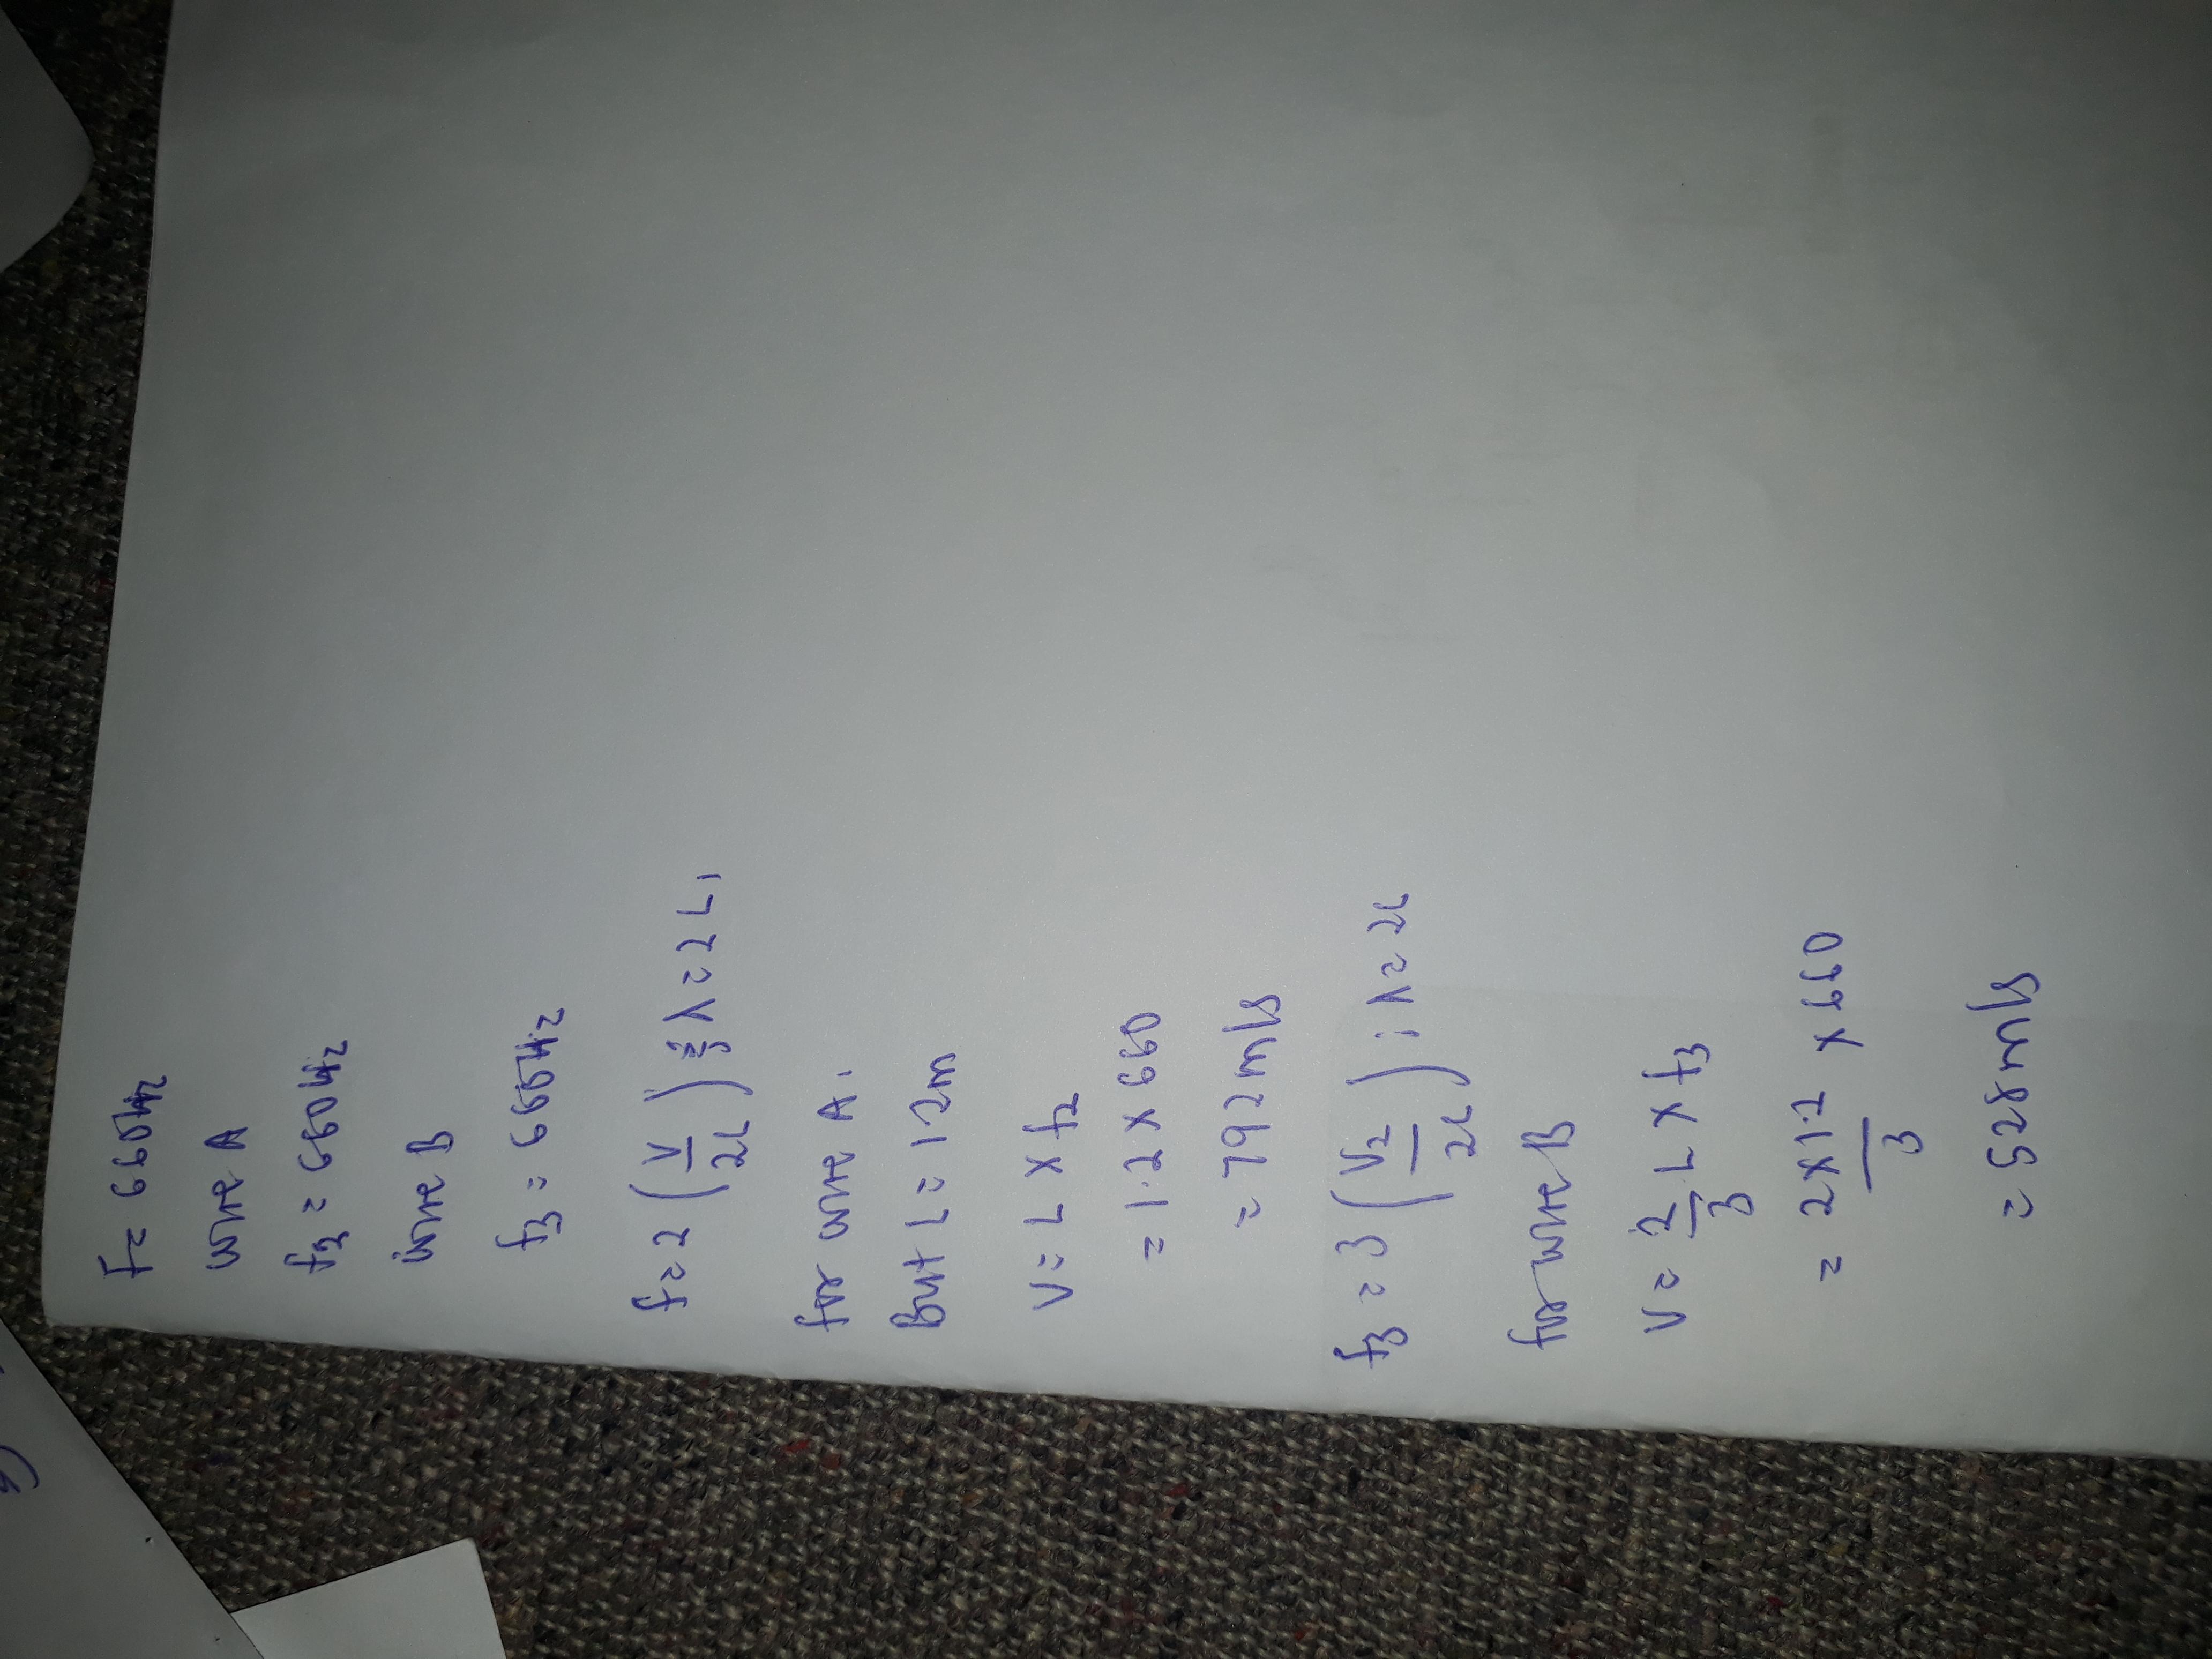 f = 660Hz
wire A
f2 = 660Hz
wire B
f3 = 660Hz
f = 2 (V/2L) ; λ = 2L,
for wire A.
But L = 1.2m
V = L x f2
= 1.2 x 660
= 792 m/s
f3 = 3 (V2/2L) ; λ = 2L
for wire B
V = 2/3 L x f3
= 2x1.2/3 x 660
= 528 m/s